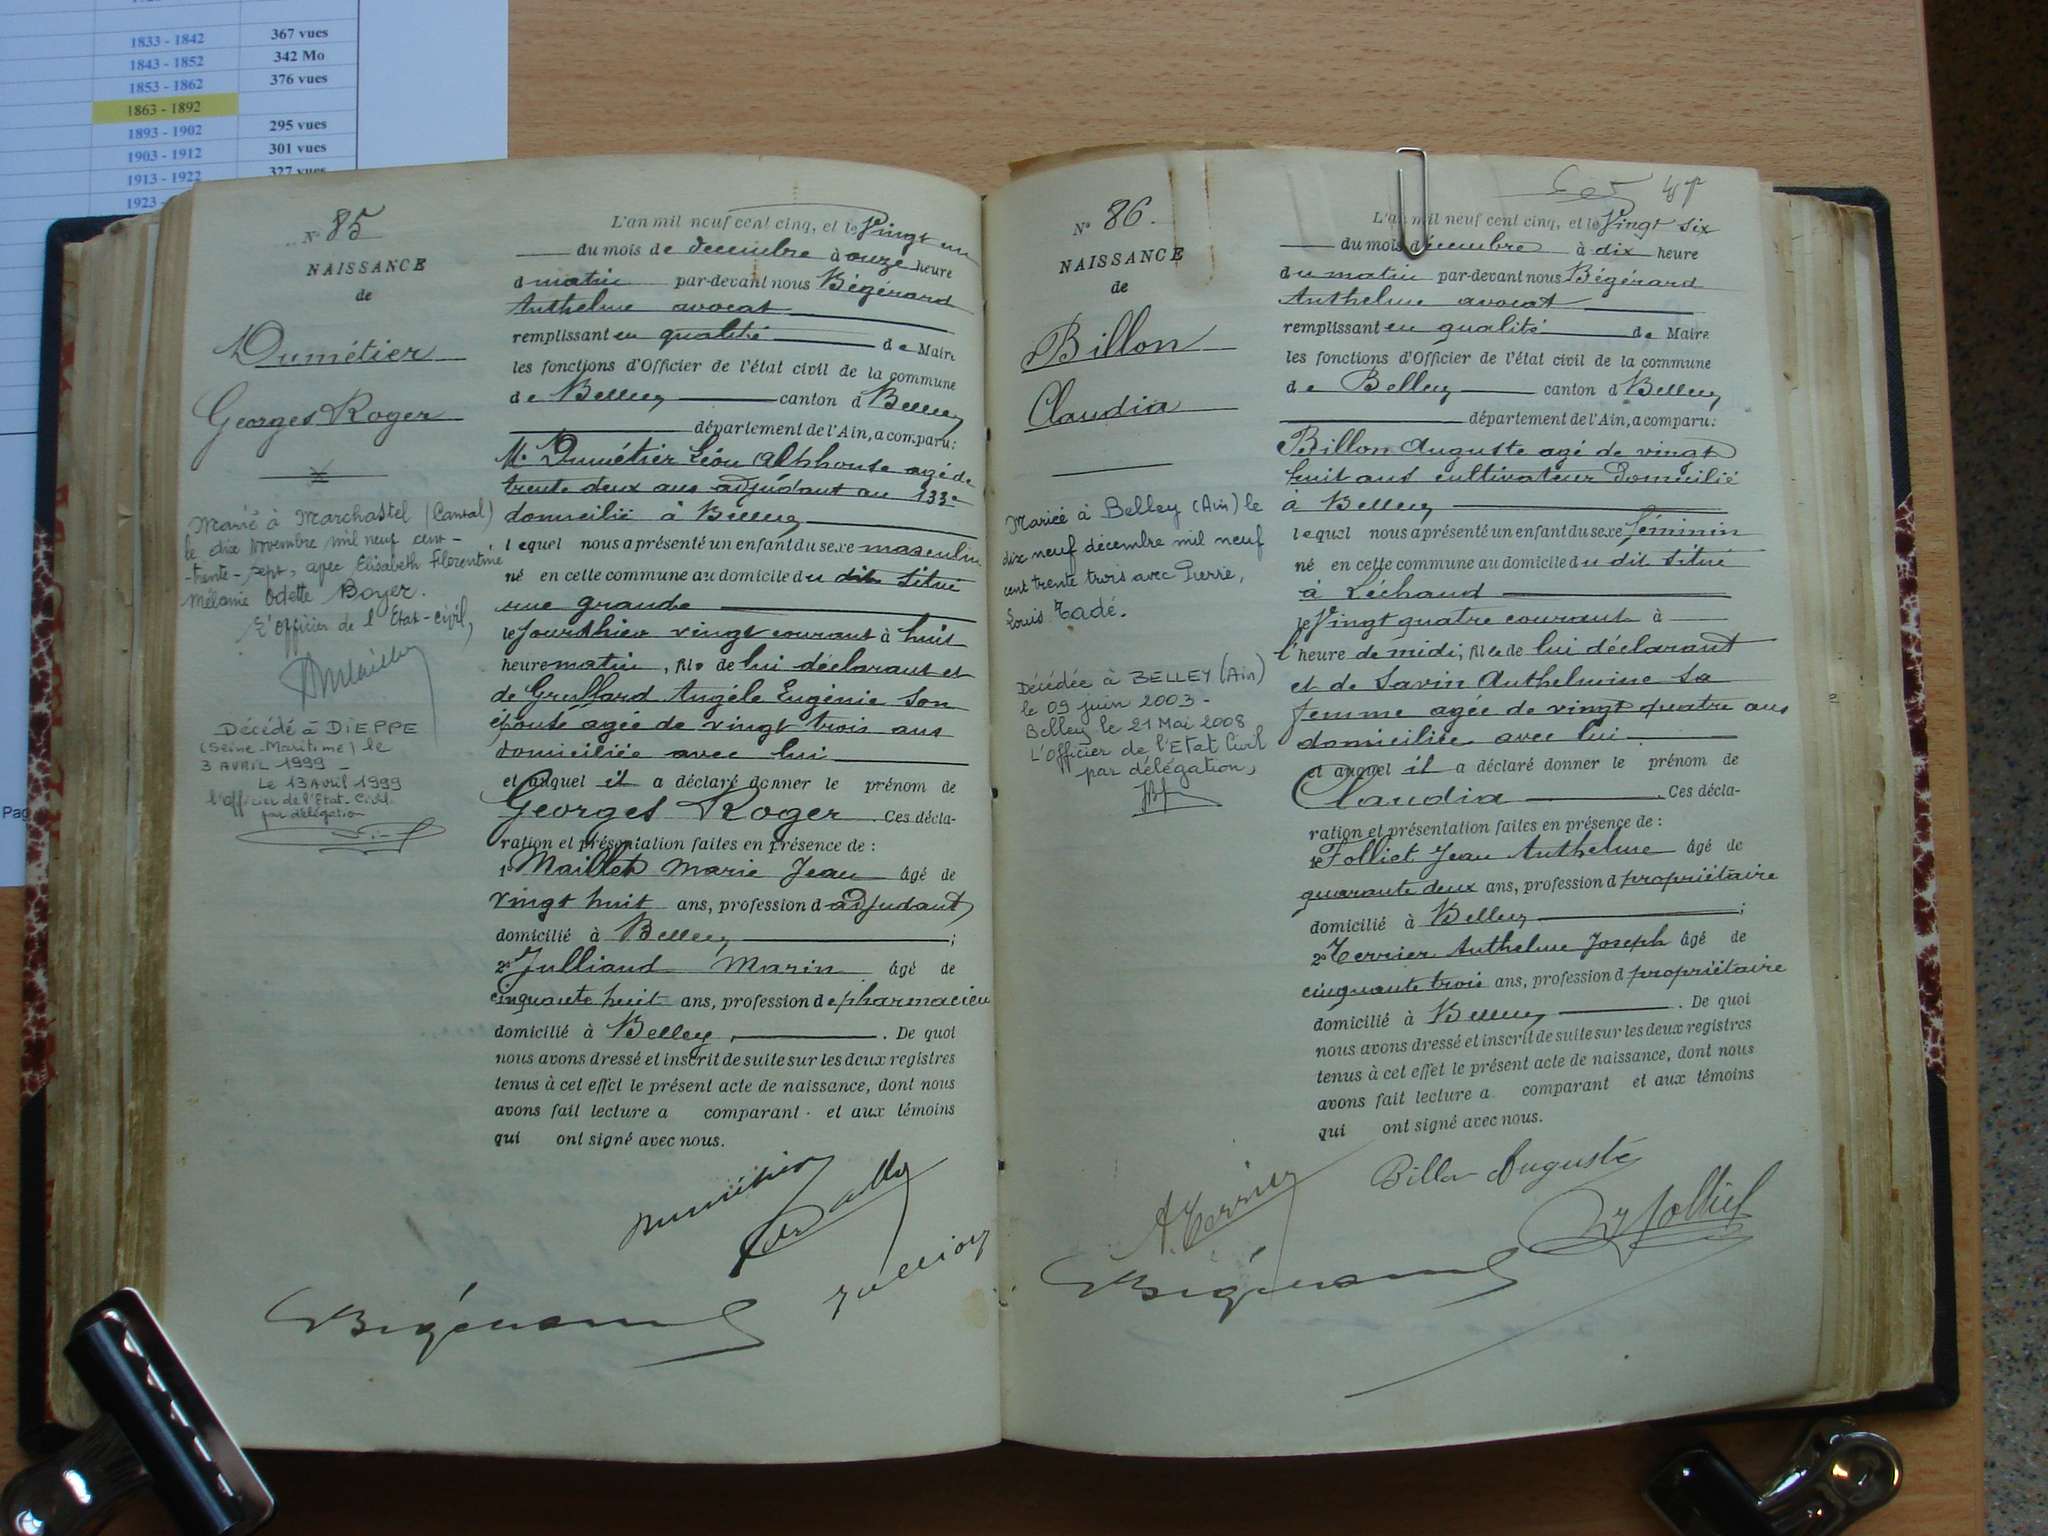 1833 - 1842 367 vues
1843 - 1852 342 Mo
1853 - 1862 376 vues
1863 - 1892
1893 - 1902 295 vues
1903 - 1912 301 vues
1913 - 1922 327 vues
1923 -
Pag
N° 85
NAISSANCE
de
Dumétier
Georges Roger
Marié à Marchastel (Cantal)
le dix Novembre mil neuf cent-
-trente-sept, avec Elisabeth Florentine
Mélanie Odette Boyer.
L'Officier de l'Etat-Civil,
Décédé à DIEPPE
(Seine-Maritime) le
3 AVRIL 1999 -
Le 13 Avril 1999
l'officier de l'Etat-Civil
par délégation
L'an mil neuf cent cinq, et le Vingt un
du mois de decembre à onze heure
d matin par-devant nous Bégérard
Anthelme avocat
remplissant en qualité de Maire
les fonctions d'Officier de l'état civil de la commune
de Belley canton d Belley
département de l'Ain, a comparu:
Mr Dumétier Léon Alphonse agé de
trente deux ans adjudant au 133e
domicilié à Belley
lequel nous a présenté un enfant du sexe masculin
né en cette commune au domicile du dit situé
rue grande
le jour d'hier vingt courant à huit
heure matin, fils de lui déclarant et
de Angèle Eugénie son
épouse agée de vingt trois ans
domiciliée avec lui
et auquel il a déclaré donner le prénom de
Georges Roger. Ces décla-
ration et présentation faites en présence de:
1° Maillet Marie Jean âgé de
vingt huit ans, profession d adjudant
domicilié à Belley;
2° Julliand Marin âgé de
cinquante huit ans, profession de pharmacien
domicilié à Belley. De quoi
nous avons dressé et inscrit de suite sur les deux registres
tenus à cet effet le présent acte de naissance, dont nous
avons fait lecture a comparant et aux témoins
qui ont signé avec nous.
Dumétier
Bégérard
N° 86.
NAISSANCE
de
Billon
Claudia
Mariée à Belley (Ain) le
dix neuf décembre mil neuf
cent trente trois avec Pierre,
Louis Tadé.
Décédée à BELLEY (Ain)
le 09 juin 2003 -
Belley le 21 Mai 2008
L'officier de l'Etat Civil
par délégation,
L'an mil neuf cent cinq, et le Vingt six
du mois décembre à dix heure
du matin par-devant nous Bégérard
Anthelme avocat
remplissant en qualité de Maire
les fonctions d'Officier de l'état civil de la commune
de Belley canton d Belley
département de l'Ain, a comparu:
Billon Auguste agé de vingt
huit ans cultivateur Domicilié
à Belley
lequel nous a présenté un enfant du sexe féminin
né en cette commune au domicile du dit situé
à Léchaud
le Vingt quatre courant à
l'heure de midi, fille de lui déclarant
et de Savin Anthelmine sa
femme agée de vingt quatre ans
domiciliée avec lui
et auquel il a déclaré donner le prénom de
Claudia. Ces décla-
ration et présentation faites en présence de:
1° Folliet Jean Anthelme âgé de
quarante deux ans, profession d propriétaire
domicilié à Belley;
2° Terrier Anthelme Joseph âgé de
cinquante trois ans, profession d propriétaire
domicilié à Belley. De quoi
nous avons dressé et inscrit de suite sur les deux registres
tenus à cet effet le présent acte de naissance, dont nous
avons fait lecture a comparant et aux témoins
qui ont signé avec nous.
A. Terrier Billon Auguste
Folliet
Bégérard